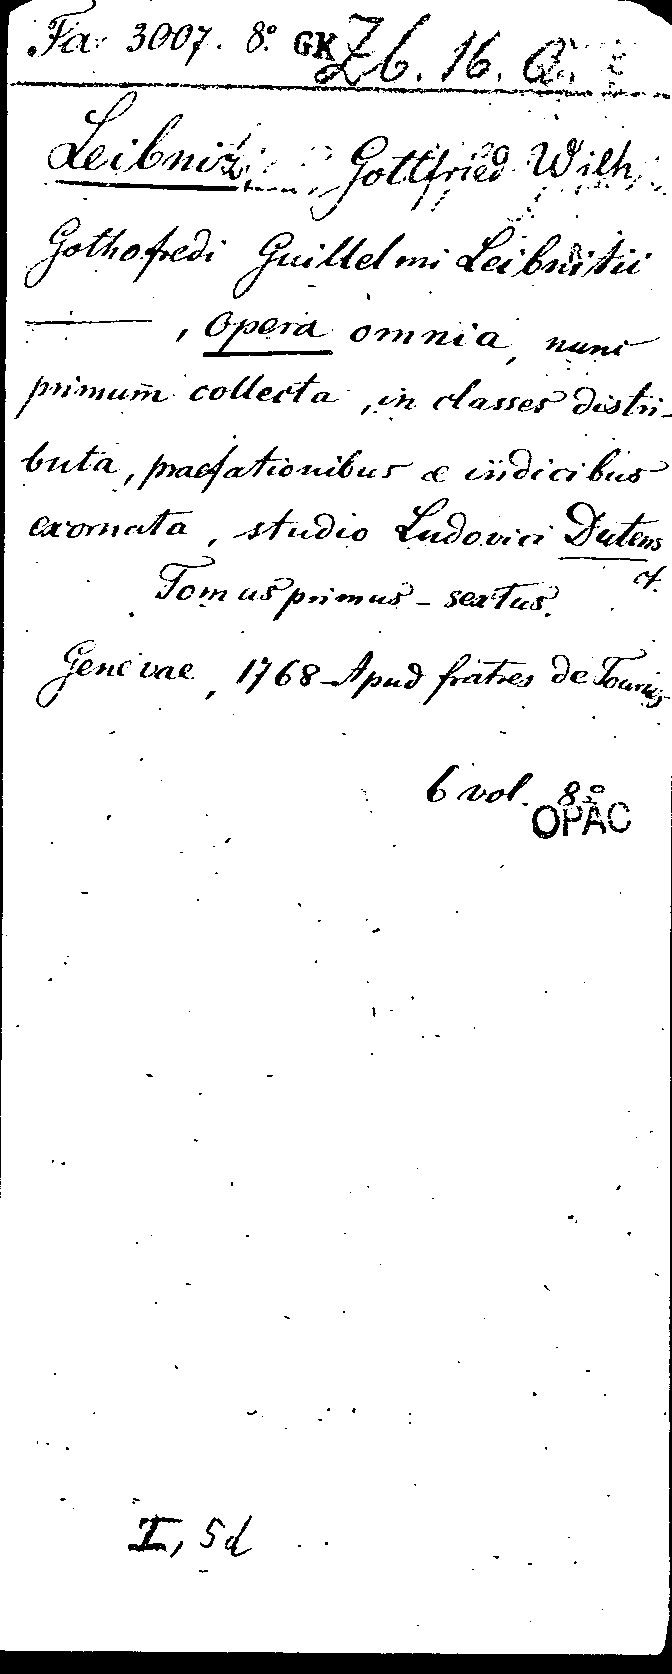 Fa 3007. 8° GK Zb. 16. a.
Leibniz, Gottfried Wilh.
Gothofredi Guillelmi Leibnitii
———, Opera omnia, nunc
primum collecta, in classes distri-
buta, praefationibus & indicibus
exornata, studio Ludovici Dutens
Tomus primus - sextus.
Genevae, 1768 Apud fratres de Tournes
6 vol. 8°
OPAC
I, 5d